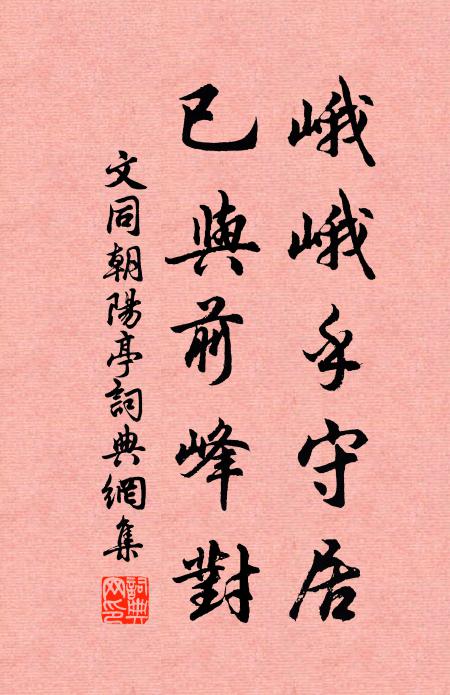 峨峨乎守居
已與前峰對
文同朝陽亭詞典網集
詞典
网印